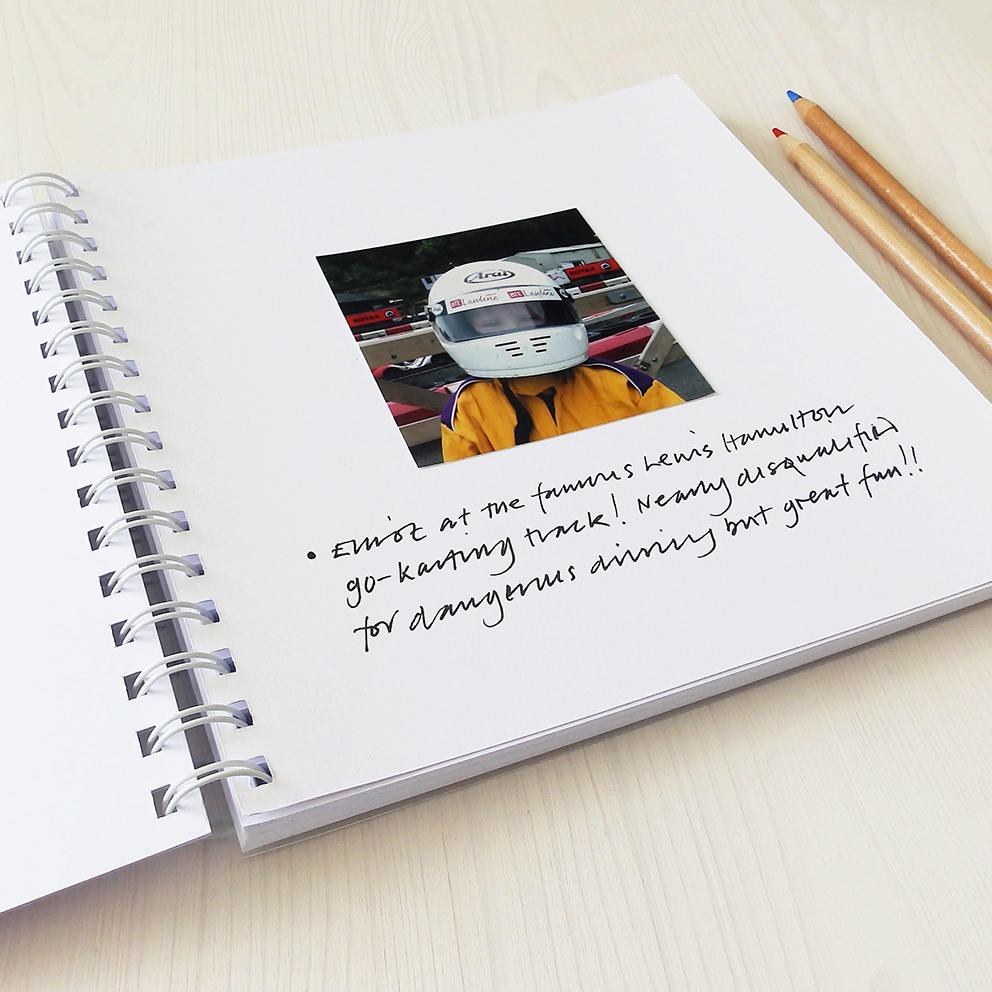 Arai
DTE Lawline DTE Lawline
ROTAX
ROTAX
• Elliot at the famous Lewis Hamilton
go-karting track! Nearly disqualified
for dangerous driving but great fun!!